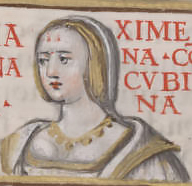 A
NA
XIME
NA·CO
CVBI
NA